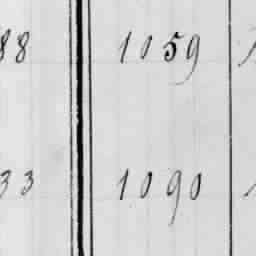 88 1059
33 1090